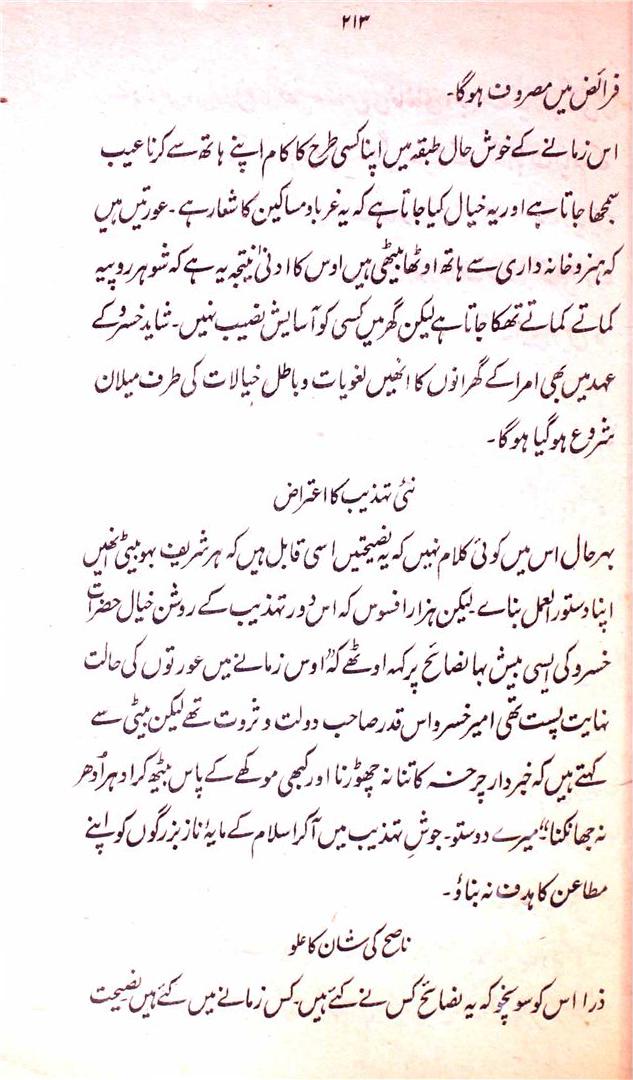 ۲۱۳
فرائض میں مصروف ہوگا۔
اس زمانے کے خوش حال طبقہ میں اپنا کسی طرح کا کام اپنے ہاتھ سے کرنا عیب
سمجھا جاتا ہے اور یہ خیال کیا جاتا ہے کہ یہ غربا و مساکین کا شعار ہے۔ عورتیں ہیں
کہ ہنر و خانہ داری سے ہاتھ اوٹھا بیٹھی ہیں اوس کا ادنیٰ نتیجہ یہ ہے کہ شوہر روپیہ
کماتے کماتے تھکا جاتا ہے لیکن گھر میں کسی کو آسایش نصیب نہیں۔ شاید خسرو کے
عہد میں بھی امرا کے گھرانوں کا انھیں لغویات و باطل خیالات کی طرف میلان
شروع ہو گیا ہو گا۔
نئی تہذیب کا اعتراض
بہر حال اس میں کوئی کلام نہیں کہ یہ نصیحتیں اسی قابل ہیں کہ ہر شریف بہو بیٹی انھیں
اپنا دستور العمل بناے لیکن ہزار افسوس کہ اس دور تہذیب کے روشن خیال حضرات
خسرو کی ایسی بیش بہا نصائح پر کہہ اوٹھے کہ "اوس زمانے میں عورتوں کی حالت
نہایت پست تھی امیر خسرو اس قدر صاحب دولت و ثروت تھے لیکن بیٹی سے
کہتے ہیں کہ خبردار چرخہ کاتنا نہ چھوڑنا اور کبھی موکھے کے پاس بیٹھ کر ادہر اُدھر
نہ جھانکنا"۔ میرے دوستو۔ جوشِ تہذیب میں آکر اسلام کے مایۂ ناز بزرگوں کو اپنے
مطاعن کا ہدف نہ بناؤ۔
ناصح کی شان کا علو
ذرا اس کو سونچو کہ یہ نصائح کس نے کئے ہیں۔ کس زمانے میں کئے ہیں نصیحت